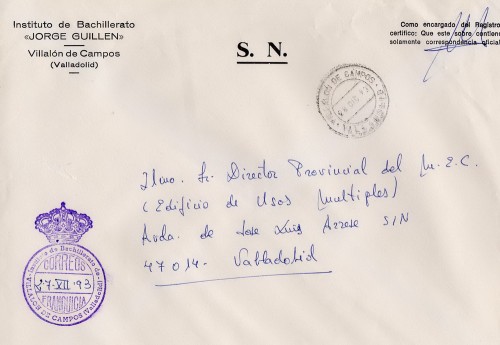 Instituto de Bachillerato
«JORGE GUILLEN»
Villalón de Campos
(Valladolid)
S. N.
Como encargado del Registro
certifico: Que este sobre contiene
solamente correspondencia oficial
VILLALON DE CAMPOS
Ilmo. Sr. Director Provincial del M.E.C.
(Edificio de Usos Multiples)
Avda. de Jose Luis Arrese S/N
47014- Valladolid
Instituto de Bachillerato de
CORREOS
27-VII-93
FRANQUICIA
VILLALON DE CAMPOS (Valladolid)